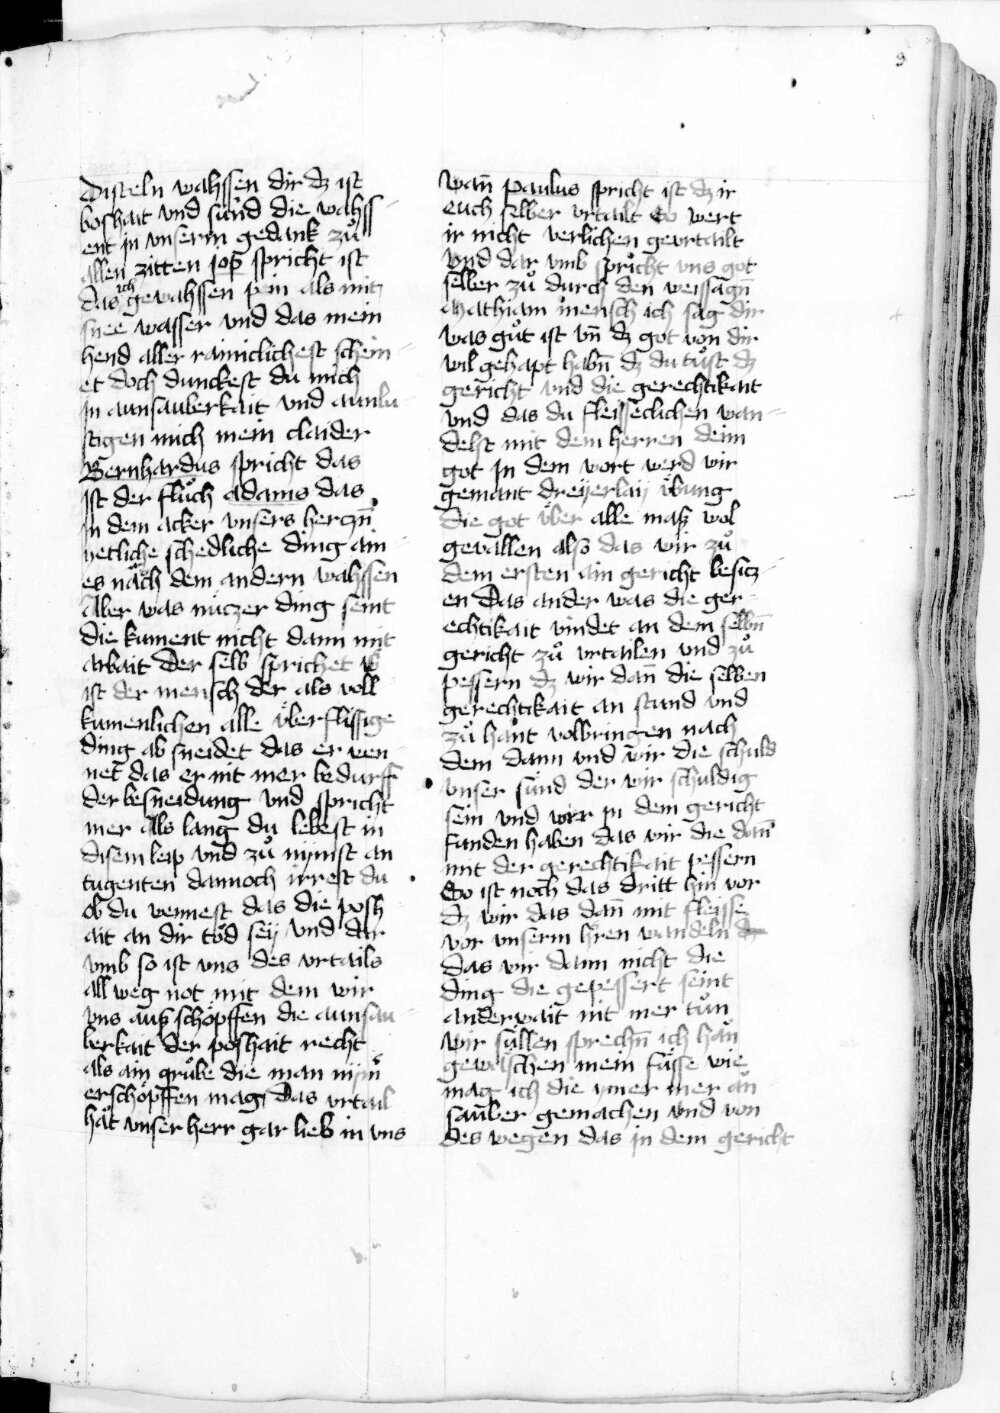 3
Disteln wahssen dir dz ist
boshait vnd sünd die wahss
ent in vnserm gedank zů
allen zitten Job spricht ist
das ich gewahssen pein als mitz
snee wasser vnd das mein
hend aller rainiclichest schein
et doch dunckest du mich
in aunsauberkait vnd aunlu
stigen mich mein claider
Bernhardus spricht das
ist der flůch adams das
in dem acker vnsers herczn̄
yetliche schedliche ding ain
es nach dem andern wahssen
Aber was nüczer ding seint
die kument nicht dann mit
arbait Der selb sprichet w
ist der mensch der als voll
kumenlichen alle überflissige
ding ab sneidet das er wen
net das er nit mer bedurff
der besneidung vnd spricht
mer als lang du lebest in
disem leip vnd zů nymst an
tugenten dannoch irrest du
ob du vennest das die posh
ait an dir tod sey vnd dar
vmb so ist vns des vrtails
all weg not mit dem wir
vns aus schöpffen die aunsau
berkait der poshait recht
als ain grůbe die man nym̄
erschöpffen mag Das vrtail
hat vnser herr gar lieb in vns
wan̄ paulus spricht ist dz ir
euch selber vrtailt So wert
ir nicht verlichen gevrtailt
vnd dar vmb spricht vns got
selber zů durch den weissagn̄
Mathiam mensch ich sag dir
was gůt ist vn̄ dz got von dir
wil gehapt habn̄ dz du tůst dz
gericht vnd die gerechtikait
vnd das du fleisseclichen wan
delst mit dem herren deim
got In dem wort werd wir
gemant dreyerlaij übung
die got über alle mass wol
gevallen also das wir zů
dem ersten ain gericht besicz
en Das ander was die ger
echtikait vindet an dem selbn̄
gericht zů vrtailen vnd zů
pessern dz wir dan̄ die selben
gerechtikait an stand vnd
zů hant volbringen nach
dem dann vnd wir die schuld
vnser sünd der wir schuldig
sein vnd wir in dem gericht
funden haben das wir die dan̄
mit der gerechtikait pessern
So ist noch das dritt hin vor
dz wir das dan̄ mit fleisse
vor vnserm hr̄en wandeln
das wir dann nicht die
ding die gepessert seint
anderwait nit mer tůn
wir süllen sprechn̄ ich han
gewaschen mein füsse wie
mag ich die ymer mer an
sauber gemachen vnd von
des wegen das in dem gericht